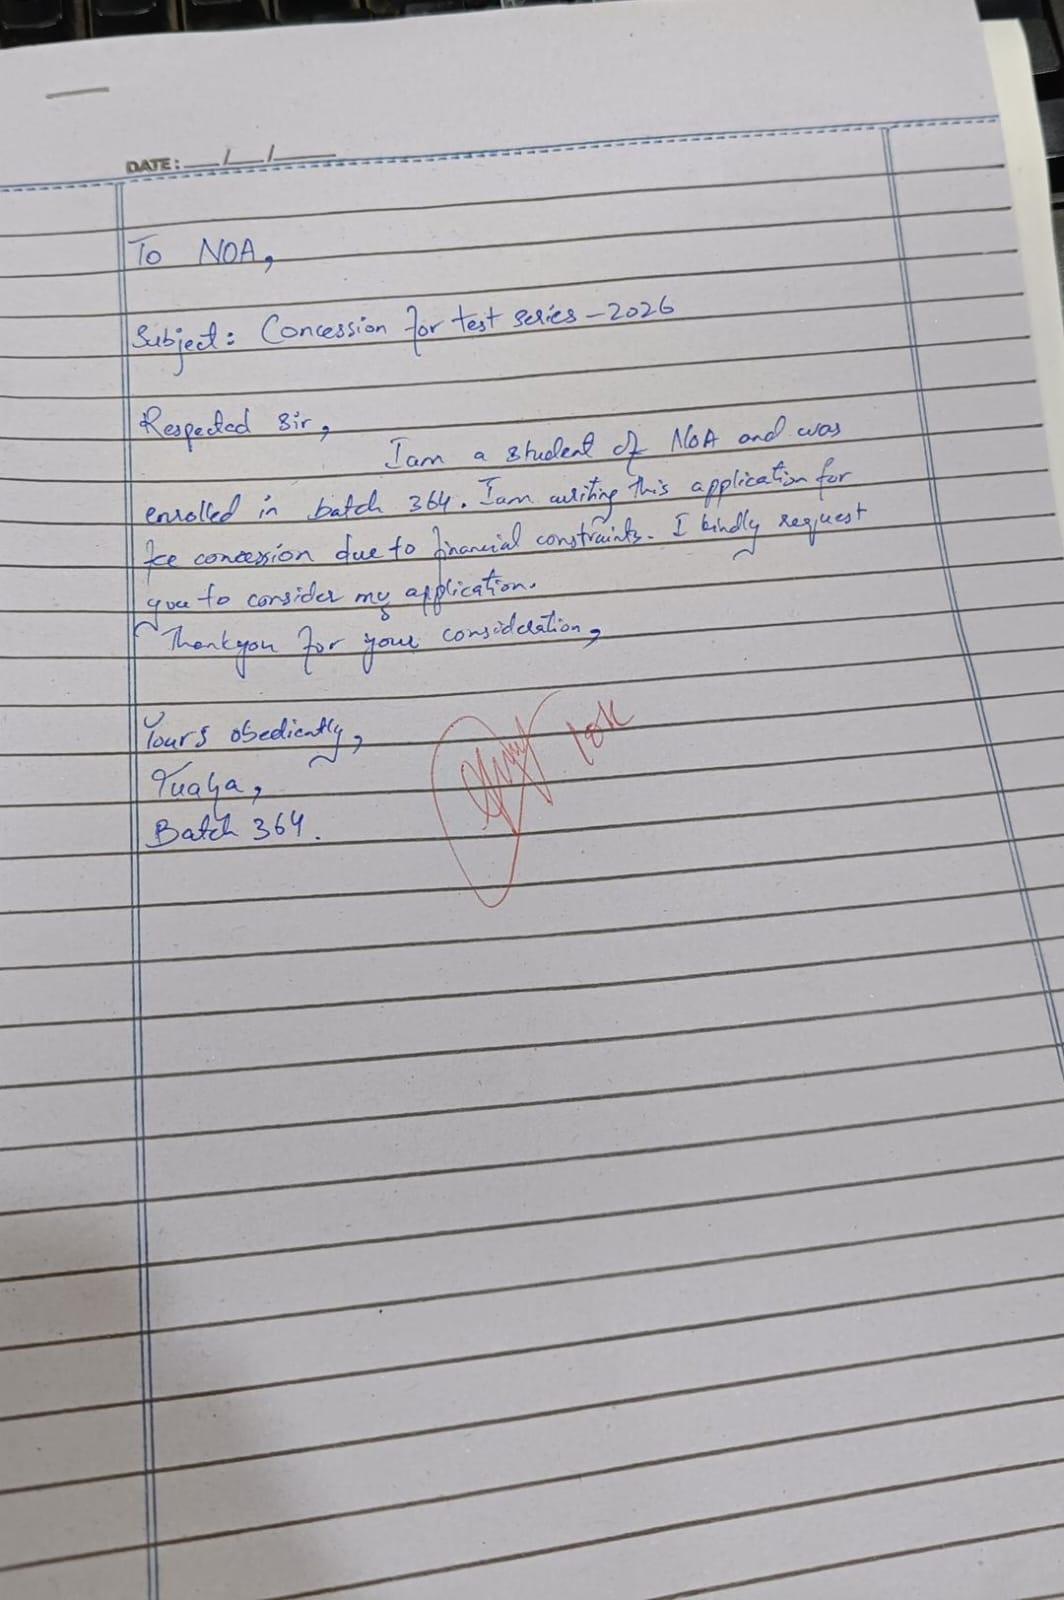 DATE: __/__/____
To NOA,
Subject: Concession for test series - 2026
Respected Sir,
I am a student of NOA and was
enrolled in batch 364. I am writing this application for
fee concession due to financial constraints. I kindly request
you to consider my application.
Thankyou for your consideration,
Yours obediently,
Batch 364.
10k